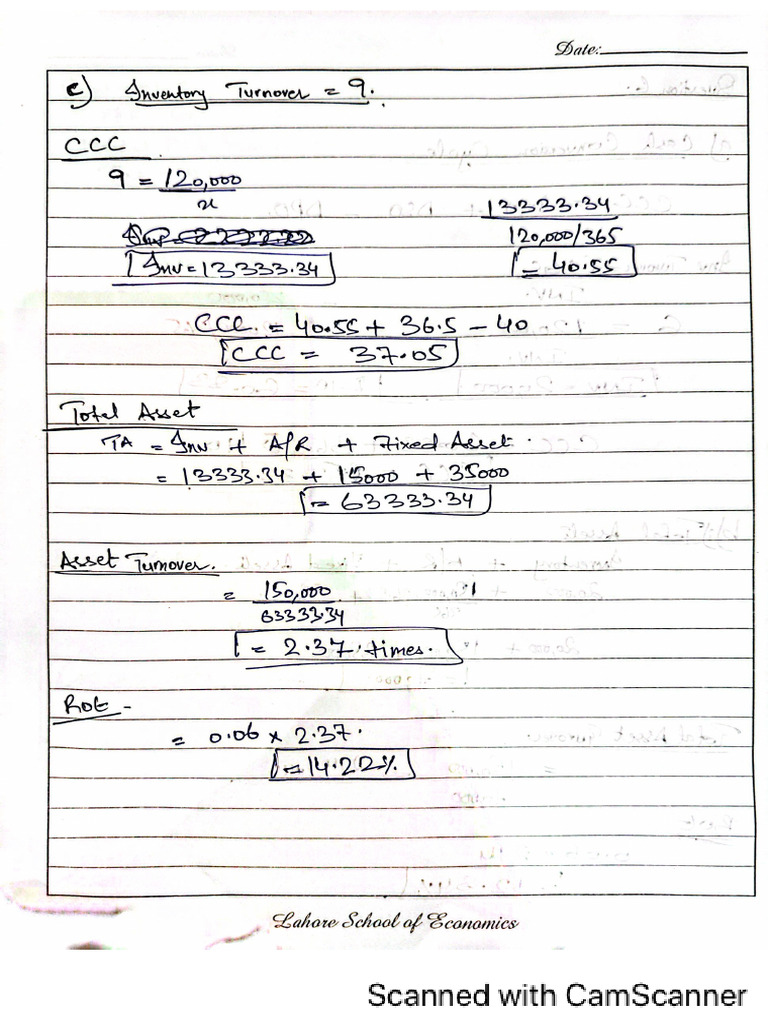 Date:
c) Inventory Turnover = 9.
CCC
9 = 120,000
x
Inv = 13333.34
13333.34
120,000/365
= 40.55
CCC = 40.55 + 36.5 - 40
CCC = 37.05
Total Asset
TA = Inv + A/R + Fixed Asset.
= 13333.34 + 15000 + 35000
= 63333.34
Asset Turnover.
= 150,000
63333.34
= 2.37 times.
ROE -
= 0.06 x 2.37.
= 14.22%
Lahore School of Economics
Scanned with CamScanner